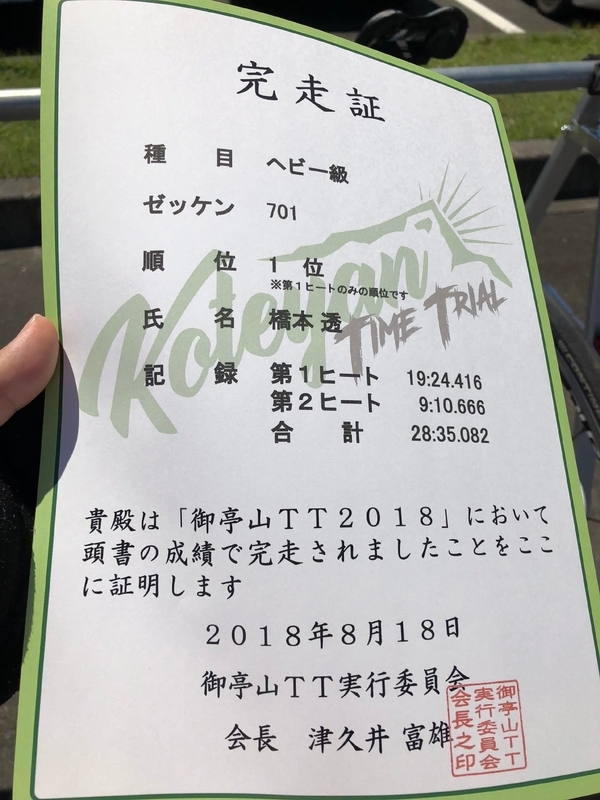 完走証
種 目 ヘビー級
ゼッケン 701
順 位 1 位
※第1ヒートのみの順位です
Koteyan
TIME TRIAL
氏 名 橋本 透
記 録 第1ヒート 19:24.416
第2ヒート 9:10.666
合 計 28:35.082
貴殿は「御亭山TT2018」において
頭書の成績で完走されましたことをここ
に証明します
2018年8月18日
御亭山TT実行委員会
会長 津久井 富雄
御亭山TT
実行委員会
会長之印